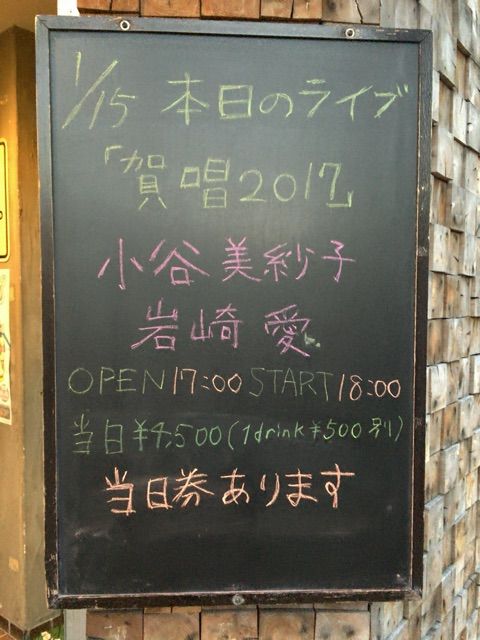 1/15 本日のライブ
「賀唱2017」
小谷美紗子
岩崎愛
OPEN17:00 START18:00
当日¥4,500(1drink¥500別)
当日券あります